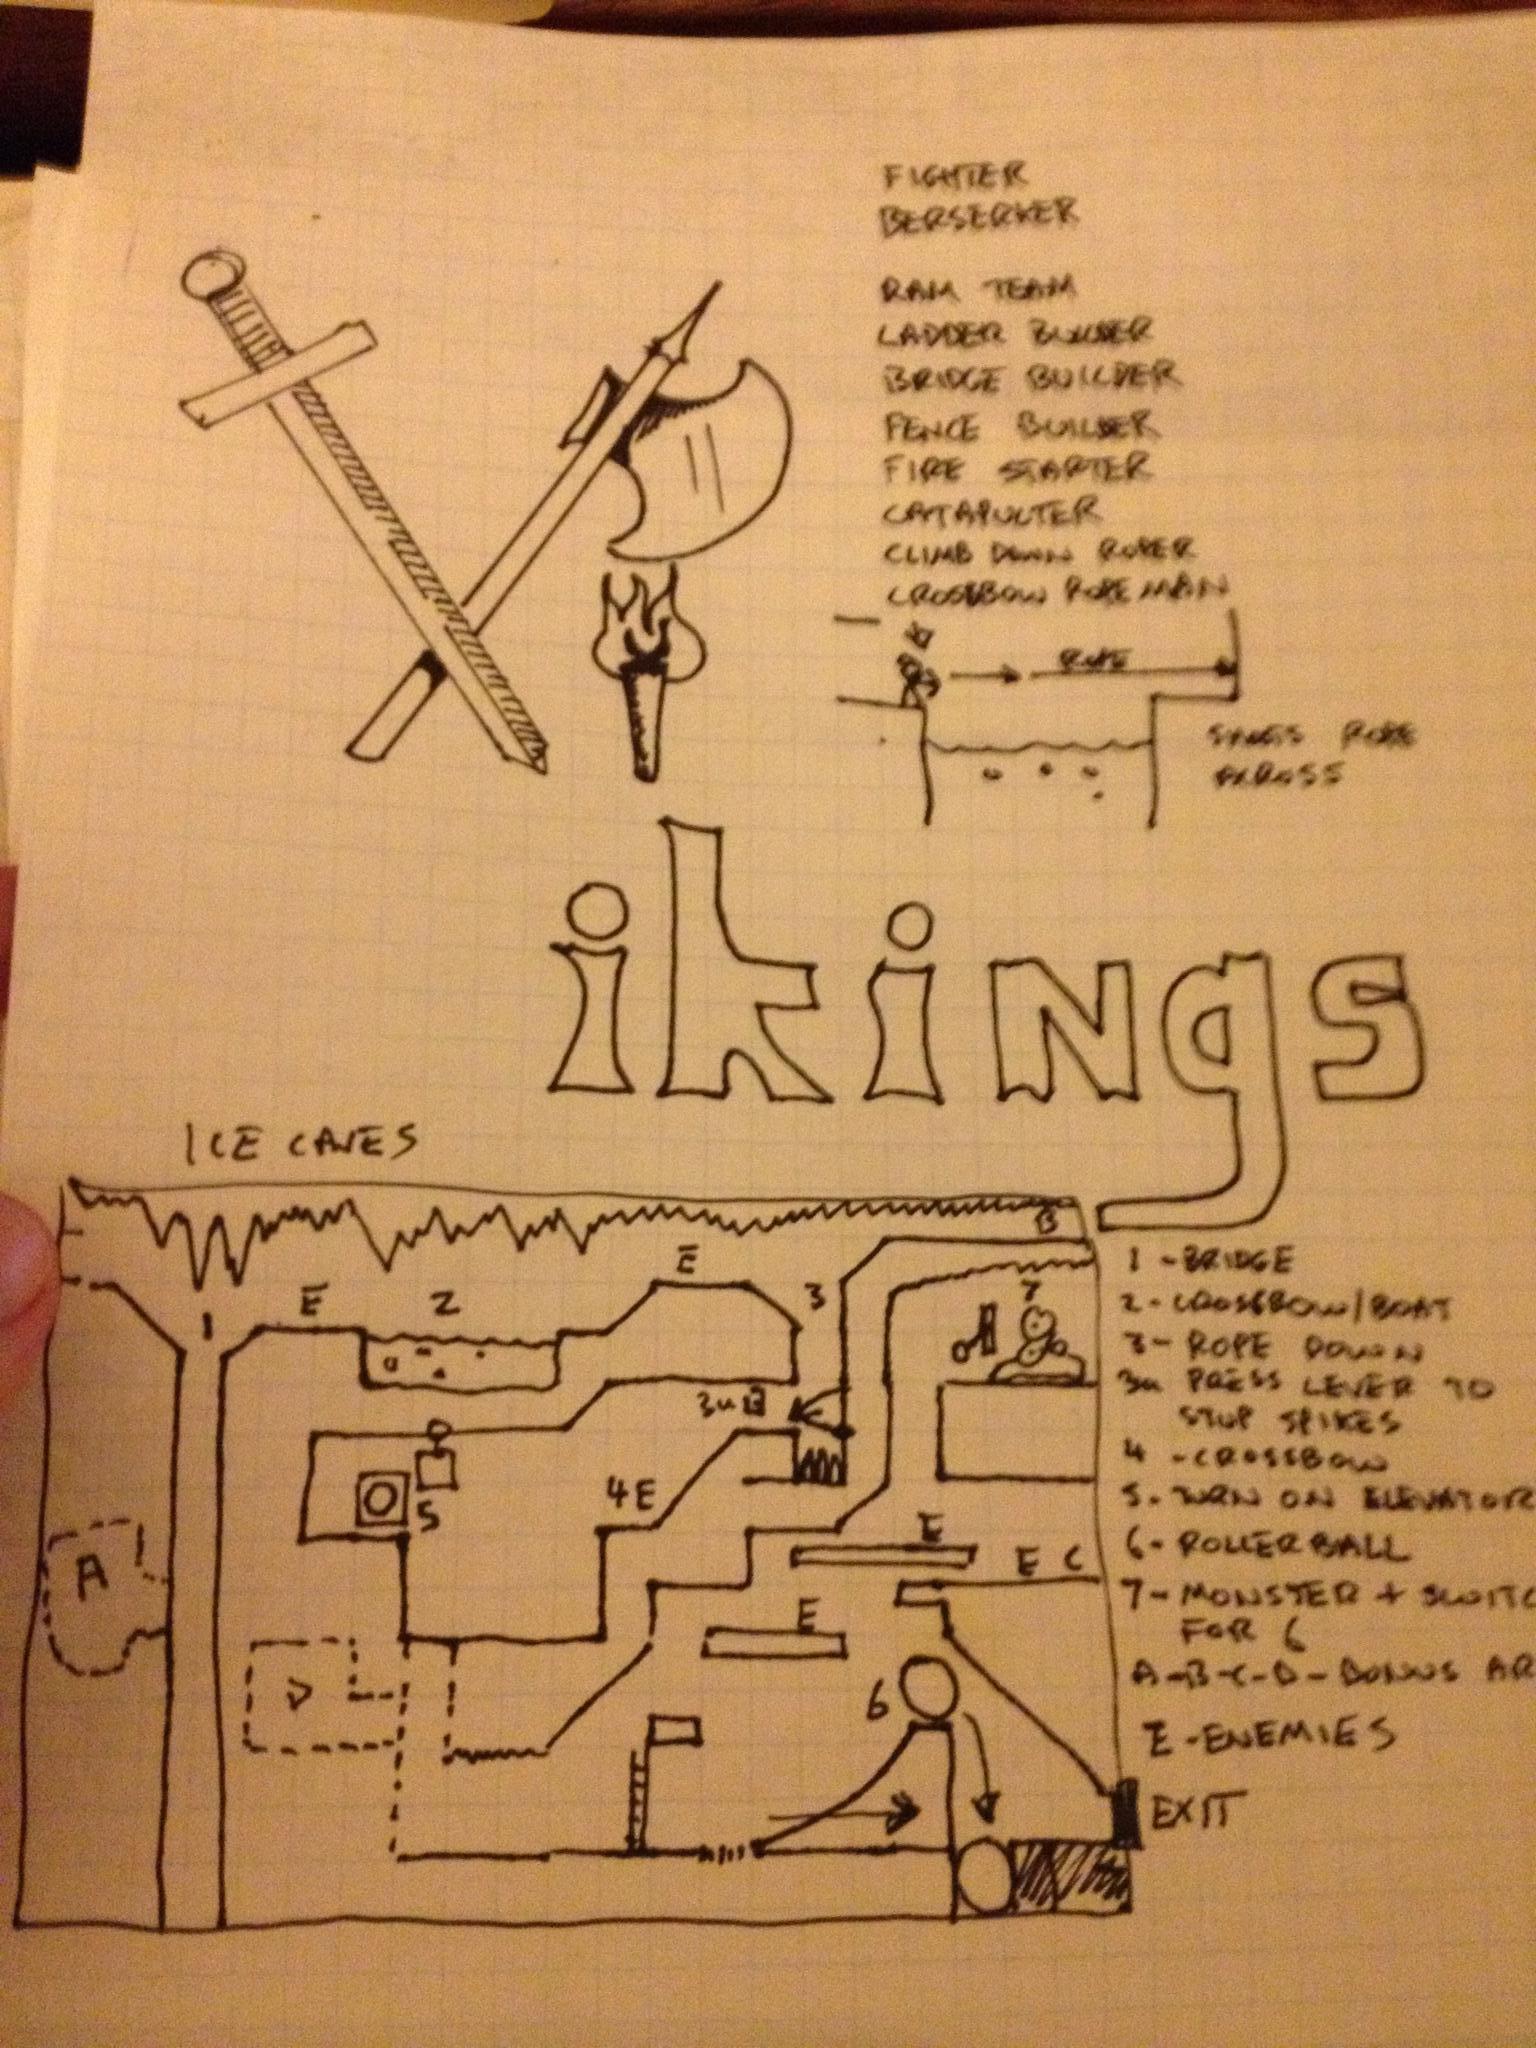 FIGHTER
BERSERKER
RAM TEAM
LADDER BUILDER
BRIDGE BUILDER
FENCE BUILDER
FIRE STARTER
CATAPULTER
CLIMB DOWN ROPER
CROSSBOW ROPE MAN
ROPE
SWINGS ROPE
ACROSS
ikings
ICE CAVES
B
E
E 2 3
1
7
3a E
4E
5
A
E
E C
E
D
6
1 - BRIDGE
2 - CROSSBOW/BOAT
3 - ROPE DOWN
3a PRESS LEVER TO
STOP SPIKES
4 - CROSSBOW
5. TURN ON ELEVATOR
6 - ROLLERBALL
7 - MONSTER + SWITC
FOR 6
A-B-C-D - BONUS AR
E - ENEMIES
EXIT